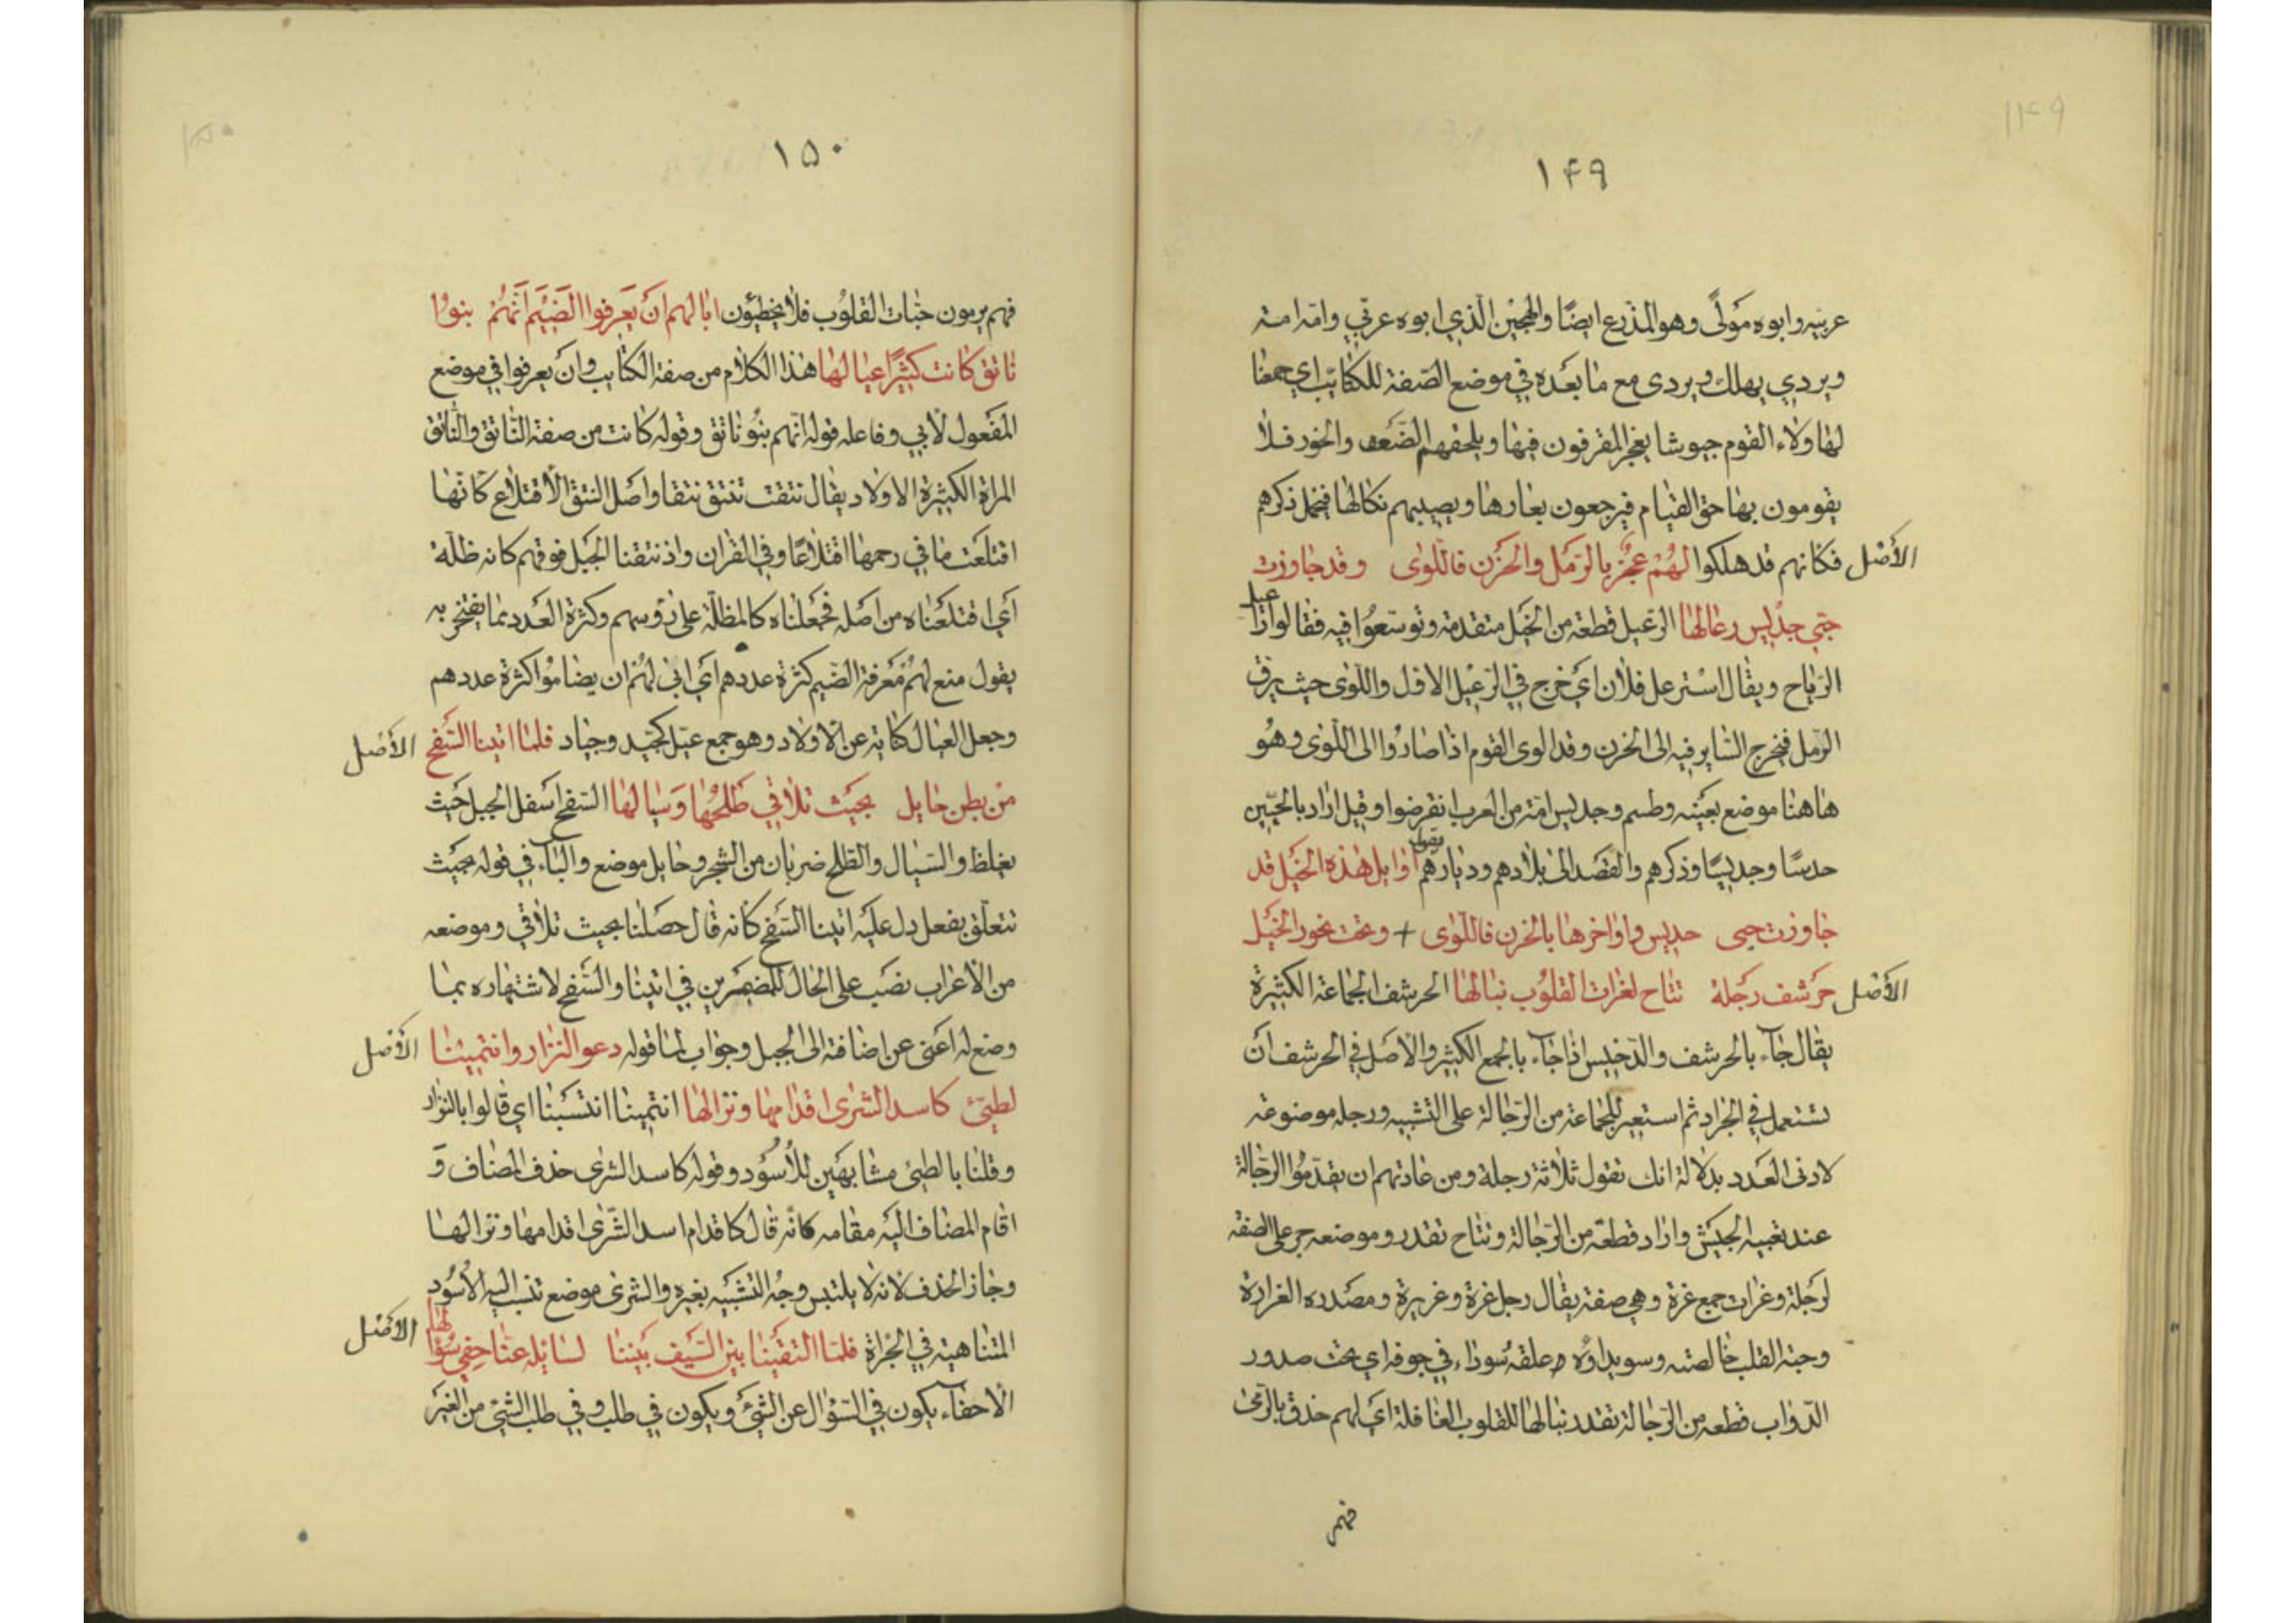 ١٤٩
١٤٩
عربيه وابوه مَولًى وهو المذرع ايضًا والهجين الّذي ابوه عربّي وامّه امة
ويردي يهلك ويردى مع ما بعَده في موضع الصّفة للكتايب اي جمعنا
لها ولاء القوم جيوشا يعجز المقرفون فيها ويلحقهم الضَعف والخور فلا
يقومون بها حق القيام فيرجعون بعارها ويصيبهم نكالها فيخمل ذكرهم
الأصْل فكانهم قد هلكوا لهُمْ عجُزٌ بالرَمَل والحَزَن فاللّوى وقد جاوزت
حيّي جدَيس رعالها الرَعيل قطعة من الخَيل متقدمة وتوسّعُوا فيه فقالوا ارَاعيل
الرّياح ويقال اسْترعل فلان ايَ خرج في الرَعيْل الاول واللّوى حيث يرق
الرّمل فيخرج السّاير فيه الى الحزن وقد الوى القوم اذا صارُوا الى اللّوى وهُو
هاهنا موضع بعَينه وطسم وجديس امّة من العرب انقرضوا وقيل اراد بالحيّين
حدسًا وجديسًا وذكرهم والقصَد الى بلادهم وديارهم يقول اوايل هذه الخَيل قد
جاوزت حيى جديس واواخرها بالحزن فاللّوى + وتحت نحور الخَيل
الأصْل حَرشف رَجلة تتاح لغرات القلوُب نبالها الحرشف الجماعة الكثيرة
يقال جَآء بالحرشف والدّخيس اذا جَآء بالجمع الكثير والاصَل في الحرشف اَن
تستعمل في الجراد ثم استعير للجماعة من الرّجالة على التشبيه ورجله موضوعه
لادنى العَدد بدلالة انك تقول ثلاثة رجلة ومن عادتهم ان يقدّموُا الرجّالة
عند تعبيه الجيَش واراد قطعَة من الرّجالة وتتاح تقدر وموضعه جر على الصفة
لرَجلة وغرات جمع غرة وهي صفة يقال رجل غرة وغريرة ومصَدره الغرارة
وحبّة القلب خالصته وسويداؤه وعلقه سُوداء في جوفه اي تحت صدور
الدّواب قطعه من الرّجالة تقدد نبالها للقلوب الغافلة ايَ لهم حذق بالرّمى
فهم
١٥٠
١٥٠
فهم يرمون حبّات القلوُب فلا يخطئون ابا لهم ان يَعرفوا الضَيَم اَنهَّمُ بنوُا
ناتق كانت كَثيرًا عيالها هذا الكلام من صفة الكتايب وان يعرفوا في موضع
المفَعول لأبي وفاعله قوله انّهم بنُو ناتق وقوله كانت من صفة النّاتق والنّاتق
المراة الكثيرة الاولاد يقال نتقت تنتق نتقا واصَل النتق الأقتلاع كانّها
اقتلعَت ما في رحمها اقتلاعًا وفي القران واذ نتقنا الجَبل فوقهم كانه ظلّة
اَي اقتلَعناه من اصَله فجَعلناه كالمظلّة على رؤسهم وكثرة العَدد مما يفتخر به
يقول منع لهُم مَعرفة الضّيم كثرة عددهم ايَ ابى لهُم ان يضاموُا كثرة عددهم
وجعل العيال كناية عن الاولاد وهو جمع عيّل كجَيّد وجياد فلما اتينا السَّفح الأصْل
من بطن حايل بحَيث تلاقي طلحُها وَسَيالها السّفح اسَفل الجبل حَيث
يغلظ والسّيال والطّلح ضربان من الشجر وحايل موضع والبآء في قوله بحَيث
تتعلّق بفعل دل عليَه اتينا السَفح كانه قال حصَلنا بحيث تلاقي وموضعه
من الأعراب نصَب على الحال للمضمرين في اتينا والسَفح لاشتهاره بما
وضع له اغنى عن اضافة الى الجبل وجواب لما قوله دعوا لنزار وانتميْنا الأصْل
لطيّئ كاسد الشرى اقدامها ونزالها انتمينا انتسَبنا اي قالوا يالنزار
وقلنا يا لطيى مشابهَين للأسُود وقوله كاسد الشرى حذف المضاف وَ
اقام المضاف اليَه مقامه كانّه قال كاقدام اسد الشّرى اقدامها ونزالها
وجاز الحذف لانه لا يلتبس وجُه التشبَيه بغيره والشرى موضع تنسب اليه الاُسُود
المتناهية في الجرْاة فلمّا التقَينا بيّن السَّيف بَيننا لسايلة عنّا حفيّ سُؤالها الأصْل
الاحفآء يكون في السّؤال عن الشئ ويكون في طلب وفي طلب الشئ من الغيَر